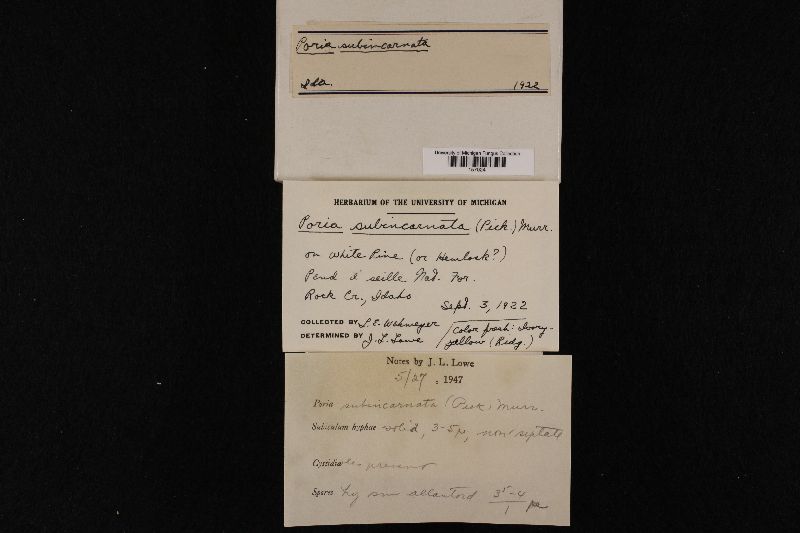 Poria subincarnata
Ida. 1922
University of Michigan Fungus Collection
HERBARIUM OF THE UNIVERSITY OF MICHIGAN
Poria subincarnata (Pick) Murr.
on White Pine (or Hemlock?)
Pend d'oeille Nat. For.
Rock Cr., Idaho
Sept. 3, 1922
COLLECTED BY L.E. Wehmeyer
DETERMINED BY J.L. Lowe
Color fresh: Ivory-
yellow (Ridg.)
Notes by J. L. Lowe
5/27, 1947
Poria subincarnata (Peck) Murr.
Subiculum hyphae solid, 3-5µ, non septate
Cystidioles present
Spores hy sm allantoid 3⁵-4
1 µ